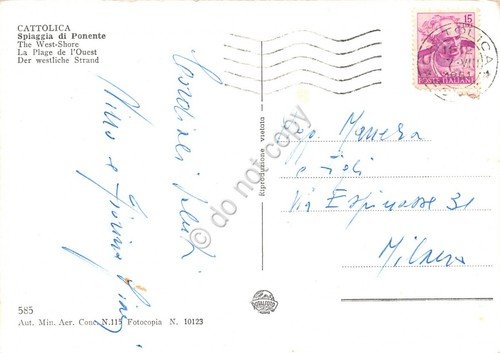 CATTOLICA
Spiaggia di Ponente
The West-Shore
La Plage de l'Ouest
Der westliche Strand
15
POSTE ITALIANE
CATTOLICA
Cordiali saluti
Riproduzione vietata
do not copy
e Figli
Via Espinasse 31
Milano
585
Aut. Min. Aer. Conc. N.115 Fotocopia N. 10123